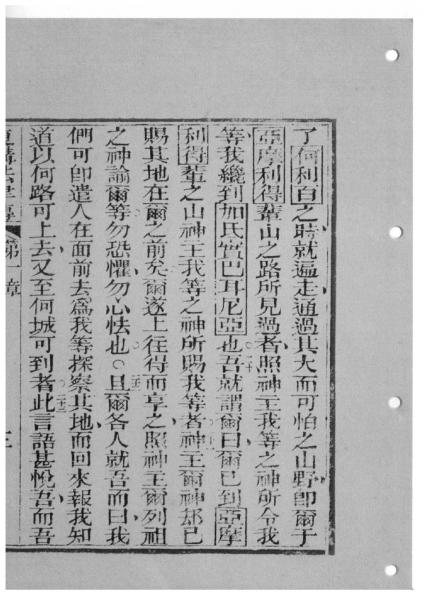 了何利百之時就遍走通過其大而可怕之山野卽爾于
亞摩利得輩山之路所見過者照神主我等之神所令我
等我纔到加氏實巴耳尼亞也吾就謂爾曰爾已到亞摩
利得輩之山神主我等之神所賜我等者神主爾神却已
賜其地在爾之前矣爾遂上往得而享之照神主爾列祖
之神諭爾等勿恐懼勿心怯也○且爾各人就吾而曰我
們可卽遣人在面前去爲我等探察其地而回來報我知
道以何路可上去又至何城可到者此言語甚悅吾而吾
第一章 三